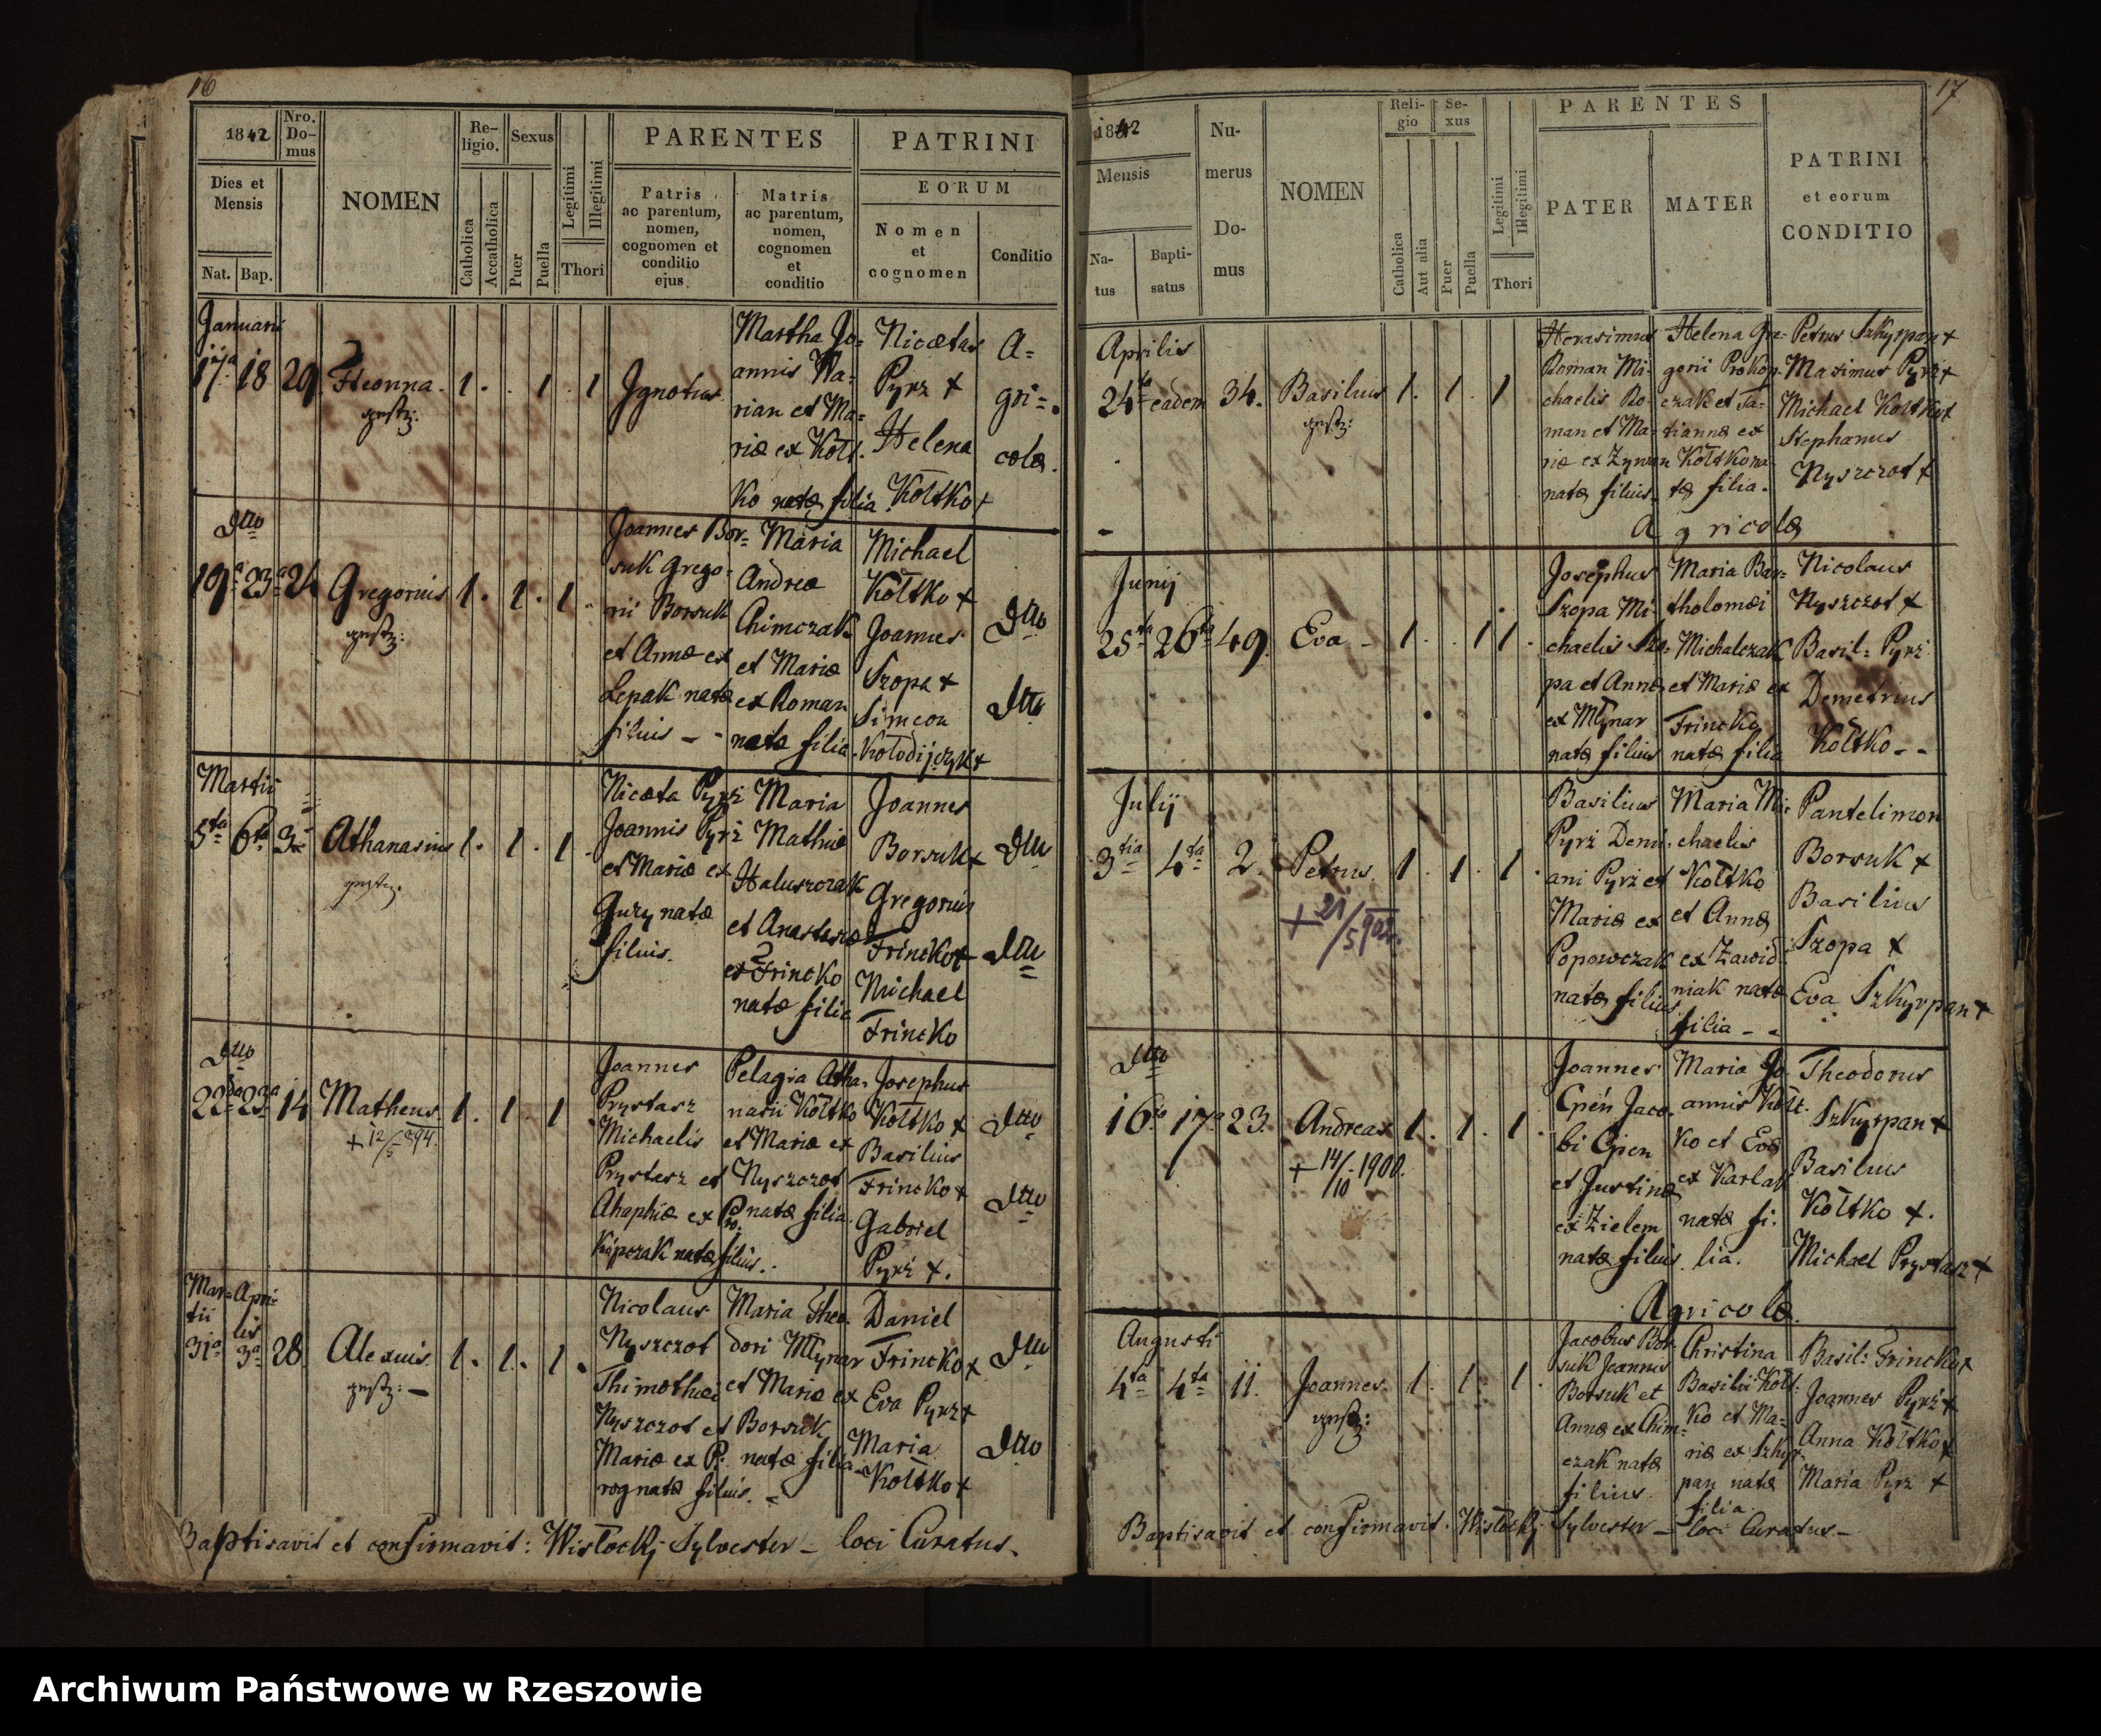 16
1842
Nro. Do- mus
Re- ligio.
Sexus
Legitimi
Illegitimi
PARENTES
PATRINI
Dies et Mensis
NOMEN
Catholica
Accatholica
Puer
Puella
Thori
Patris ac parentum, nomen, cognomen et conditio ejus
Matris ac parentum, nomen, cognomen et conditio
EORUM
Nomen et cognomen
Conditio
Nat.
Bap.
Januarii
17 18 29 1. 1. 1
Ignotus
Martha Jo-
annis Ma-
rian et Ma-
riæ ex Kołt.
ko natæ filia.
Nicætas
Pyrz +
Helena
Kołtko +
A-
gri-
colæ.
Dtto
19 23 24 Gregorius 1. 1. 1.
Joannes Bor-
suk Grego-
rii Borsuk
et Annæ ex
Lepak natæ
filius
Maria
Andreæ
Chimczak
et Mariæ
ex Roman
natæ filia
Michael
Kołtko +
Joannes
Szopa +
Simeon
Kołodijczyk +
Dtto
Dtto
Martii
5ta 6ta 3 Athanasius 1. 1. 1.
Nicæta Pyrz
Joannis Pyrz
et Mariæ ex
Guzy natæ
filius.
Maria
Mathiæ
Haluszczak
et Anastasiæ
ex Frincko
natæ filia
Joannes
Borsuk +
Gregorius
Frincko +
Michael
Frincko
Dtto
Dtto
Dtto
22 23 14 Matheus 1. 1. 1
+ 12/5 894.
Joannes
Prystasz
Michaelis
Prystasz et
Ahaphiæ ex Pro-
kipczak natæ filius.
Pelagia Atha-
nasii Kołtko
et Mariæ ex
Nyszczot
natæ filia.
Josephus
Kołtko +
Basilius
Frincko +
Gabriel
Pyrz +.
Dtto
Dtto
Mar- tii
Apri- lis
31a 3a 28 Alexius 1. 1. 1.
Nicolaus
Nyszczot
Thimothei
Nyszczot et
Mariæ ex Pi-
rog natæ filius.
Maria Theo-
dori Młynar
et Mariæ ex
Borsuk
natæ filia
Daniel
Frincko +
Eva Pyrz +
Maria
Kołtko +
Dtto
Dtto
Baptisavit et confirmavit: Wisłockj Sylvester – loci Curatus.
17
1842
Mensis
Na- tus
Bapti- satus
Nu- merus Do- mus
NOMEN
Reli- gio
Se- xus
Catholica
Aut alia
Puer
Puella
Legitimi
Illegitimi
Thori
PARENTES
PATER
MATER
PATRINI et eorum CONDITIO
Aprilis
24ta eadem 34. Basilius 1. 1. 1
Herasimus
Roman Mi-
chaelis Ro-
man et Ma-
riæ ex Zynian
natæ filius.
Helena Gre-
gorii Prokop-
czak et Ta-
tiannæ ex
Kołtko na-
tæ filia.
Petrus Szkyrpan +
Maximus Pyrz +
Michael Kołtko +
Stephanus
Nyszczot +
Agricolæ
Junij
25ta 26ta 49. Eva 1. 1 1.
Josephus
Szopa Mi-
chaelis Szo-
pa et Annæ
ex Młynar
natæ filius
Maria Bar-
tholomæi
Michalczak
et Mariæ ex
Frincko
natæ filia
Nicolaus
Nyszczot +
Basil: Pyrz
Demetrius
Kołtko
Julij
3tia 4ta 2. Petrus 1. 1. 1.
+ 21/5 902.
Basilius
Pyrz Demi-
ani Pyrz et
Mariæ ex
Popowczak
natæ filius
Maria Mi-
chaelis
Kołtko
et Annæ
ex Zawid-
niak natæ
filia
Pantelimon
Borsuk +
Basilius
Szopa +
Eva Szkyrpan +
Dtto
16. 17. 23. Andreas 1. 1. 1.
+ 14/10 1900.
Joannes
Epen Jaco-
bi Epen
et Justinæ
ex Zielem
natæ filius
Maria Jo-
annis Kołt-
ko et Evæ
ex Karlak
natæ fi-
lia.
Theodorus
Szkyrpan +
Basilius
Kołtko +.
Michael Prystasz +
Agricolæ.
Augusti
4ta 4ta 11. Joannes 1. 1. 1.
Jacobus Bor-
suk Joannis
Borsuk et
Annæ ex Chim-
czak natæ
filius
Christina
Basilii Kołt-
ko et Ma-
riæ ex Szkyr-
pan natæ
filia.
Basil: Frincko +
Joannes Pyrz +
Anna Kołtko +
Maria Pyrz +
Baptisavit et confirmavit: Wisłockj Sylvester – loci Curatus –
Archiwum Państwowe w Rzeszowie